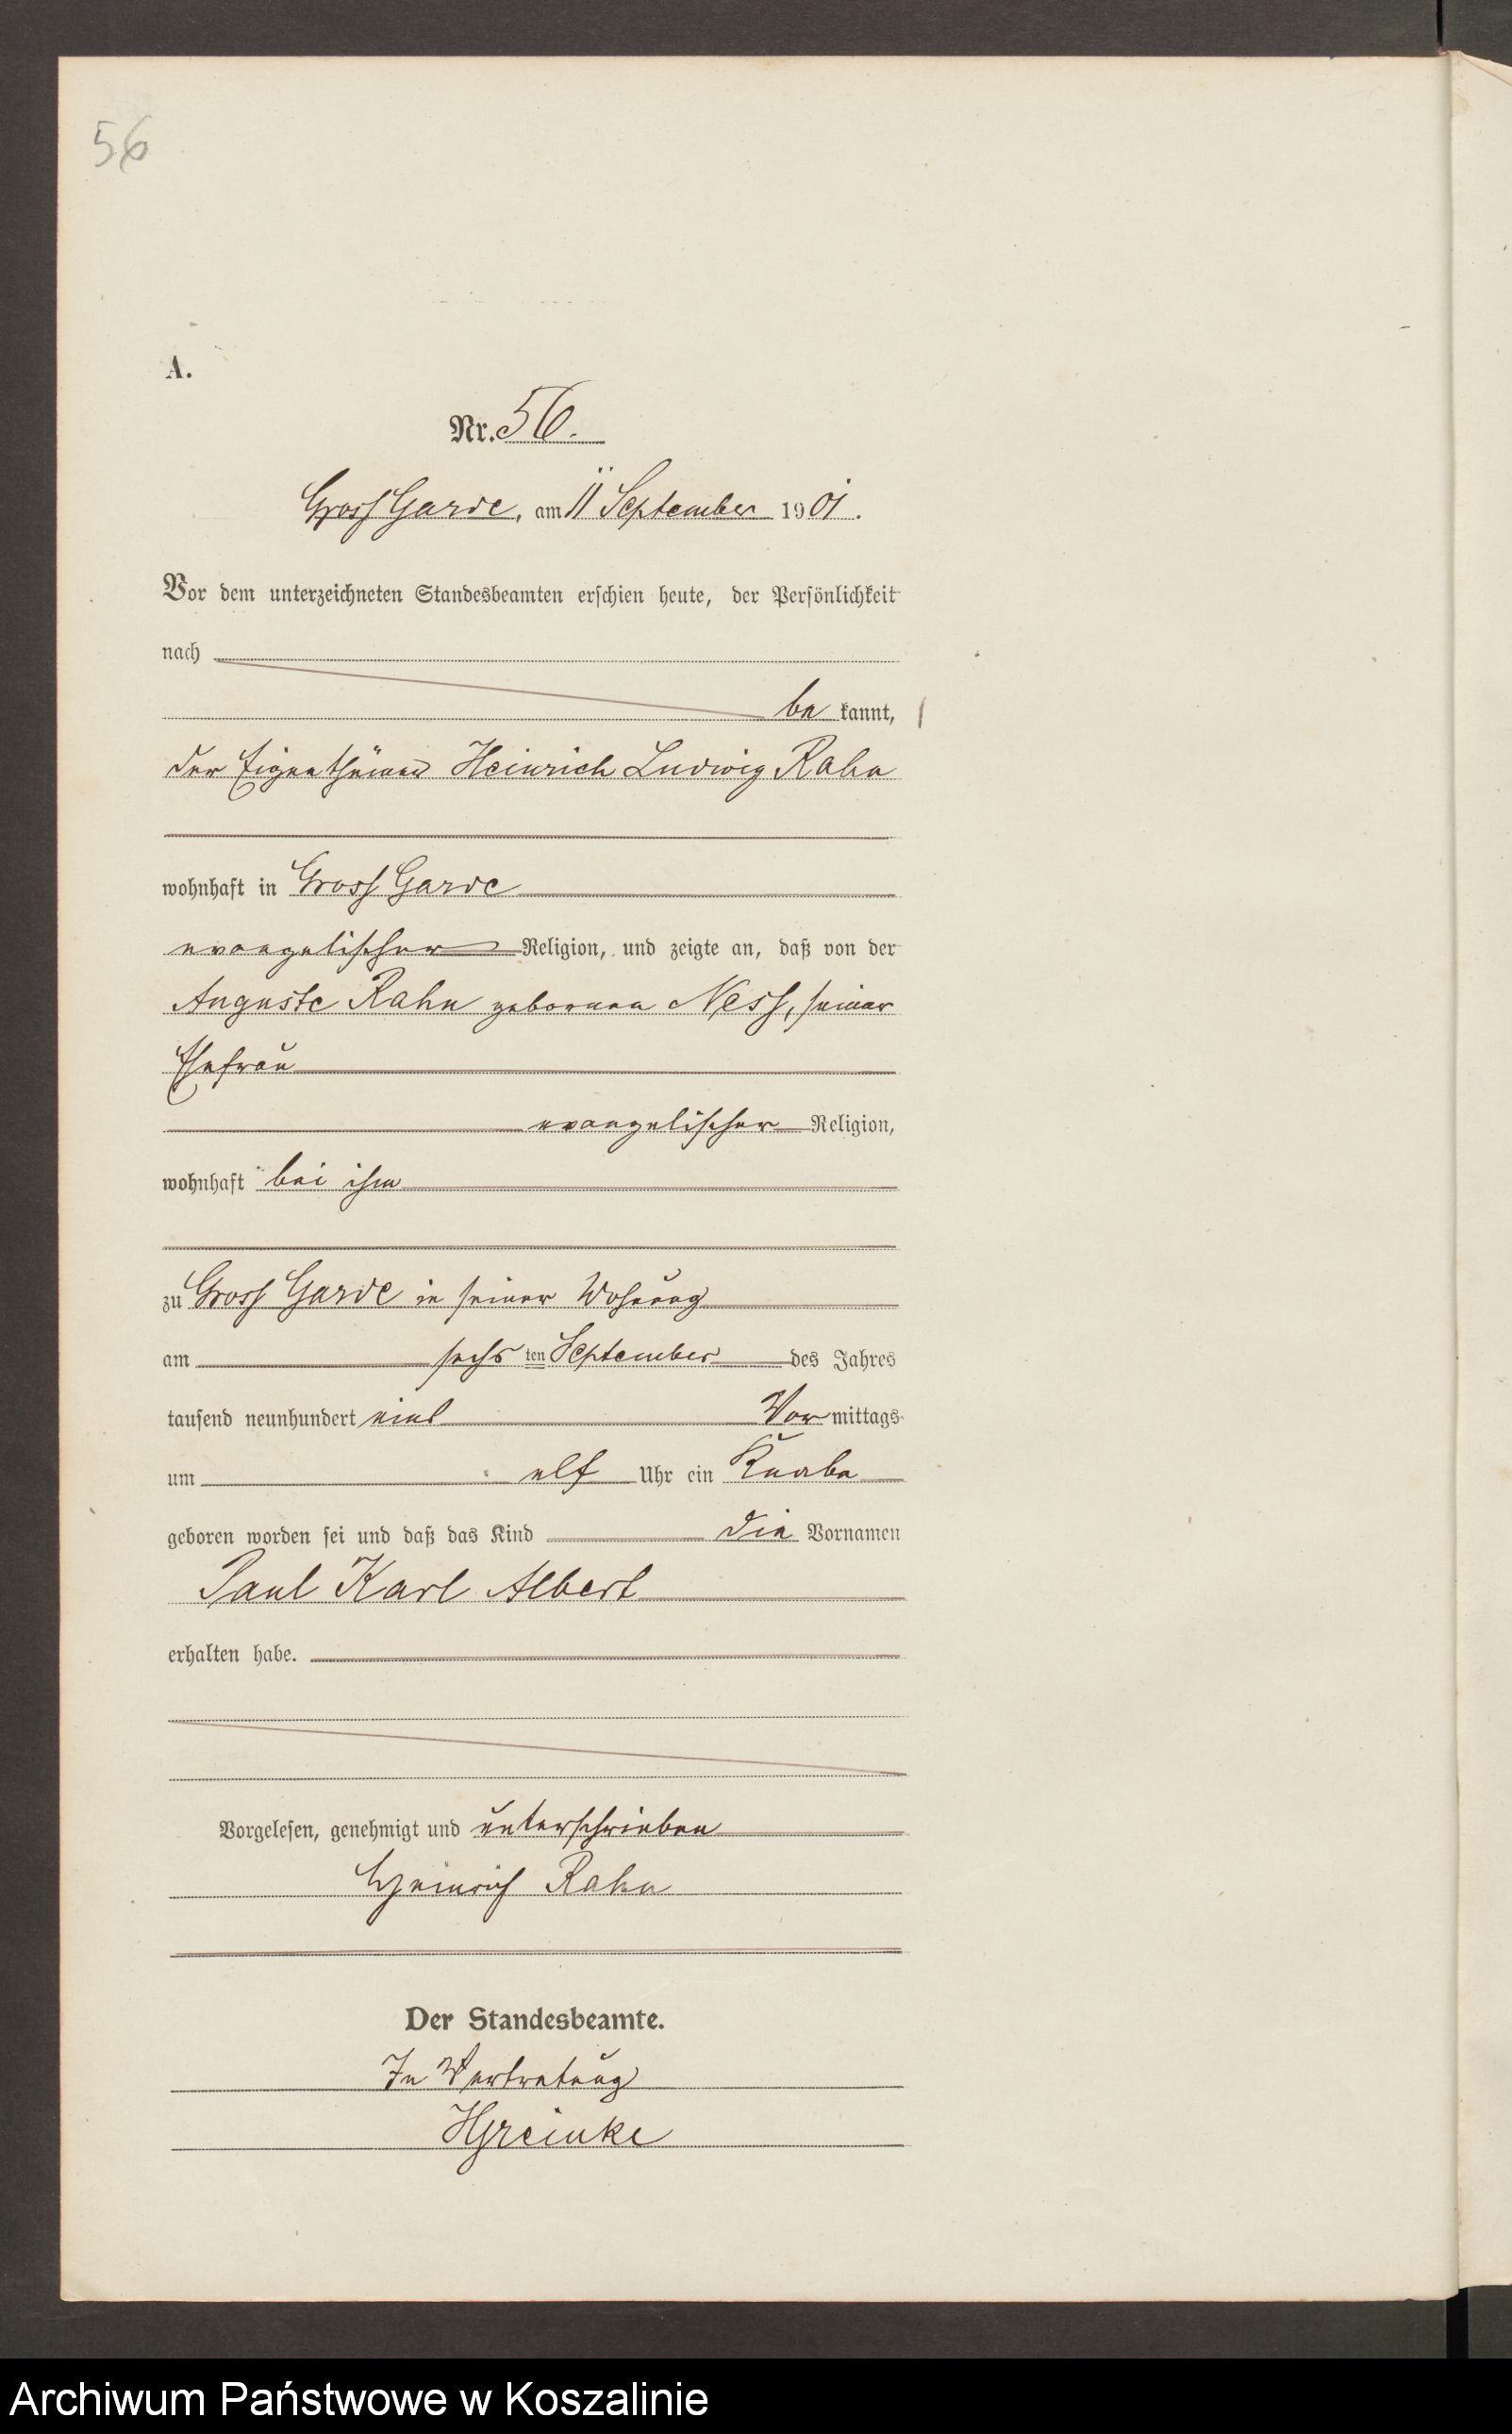 56
A.
Nr. 56.
Gross Garde, am 11 September 1901.
Vor dem unterzeichneten Standesbeamten erschien heute, der Persönlichkeit
nach
be kannt,
der Eigenthümer Heinrich Ludwig Rahn
wohnhaft in Gross Garde
evangelischer Religion, und zeigte an, daß von der
Auguste Rahn geborenen Ness, seiner
Ehefrau
evangelischer Religion,
wohnhaft bei ihm
zu Gross Garde in seiner Wohnung
am sechs ten September des Jahres
tausend neunhundert eins Vor mittags
um elf Uhr ein Knabe
geboren worden sei und daß das Kind die Vornamen
Paul Karl Albert
erhalten habe.
Vorgelesen, genehmigt und unterschrieben
Heinrich Rahn
Der Standesbeamte.
In Vertretung
HGreinke
Archiwum Państwowe w Koszalinie